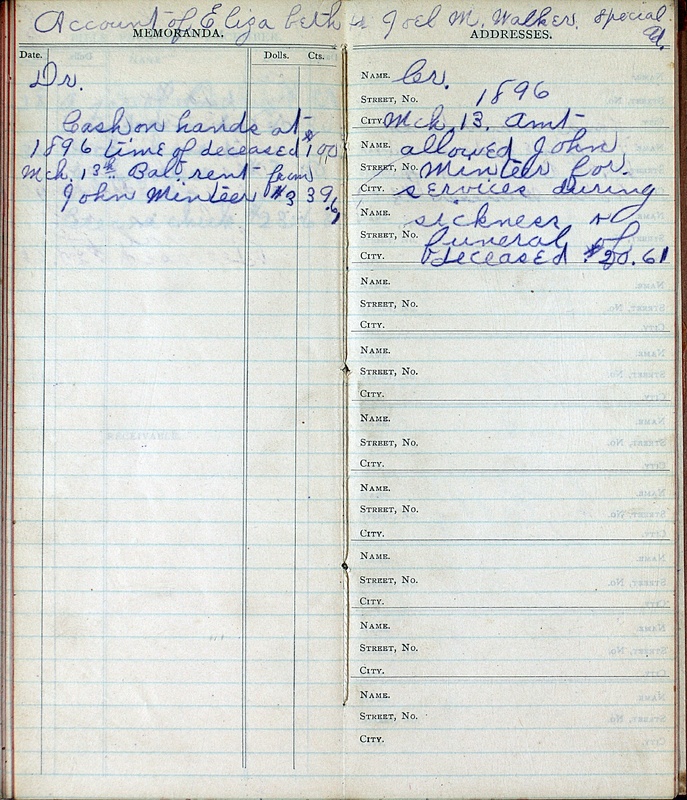 Account of Elizabeth & Joel M. Walker. Special
Ad.
MEMORANDA.
Date. Dolls. Cts.
Dr.
Cash on hands at
1896 time of deceased $100
Mch. 13th Bal. rent from
John Minteer #3 39
ADDRESSES.
Name. Cr.
Street, No. 1896
City. Mch 13. Amt
Name. allowed John
Street, No. Minteer for
City. services during
Name. sickness &
Street, No. funeral of
City. deceased. $20.61
Name.
Street, No.
City.
Name.
Street, No.
City.
Name.
Street, No.
City.
Name.
Street, No.
City.
Name.
Street, No.
City.
Name.
Street, No.
City.
Name.
Street, No.
City.